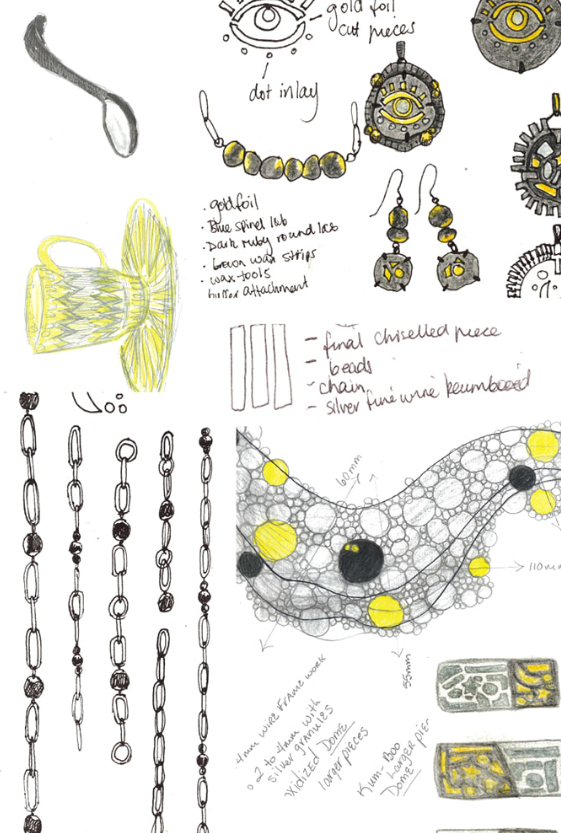 gold foil
cut pieces
dot inlay
. goldfoil
. Blue spinel lab
. Dark ruby round lab
. Green wax strips
. wax-tools
buffer attachment
- final chiselled piece
- beads
- chain
- silver fine wire
60mm
110mm
55mm
4mm wire frame work
0.2 to 4mm with
silver granules
oxidized Dome
larger pieces
Kum-Boo
Larger pie
Dome